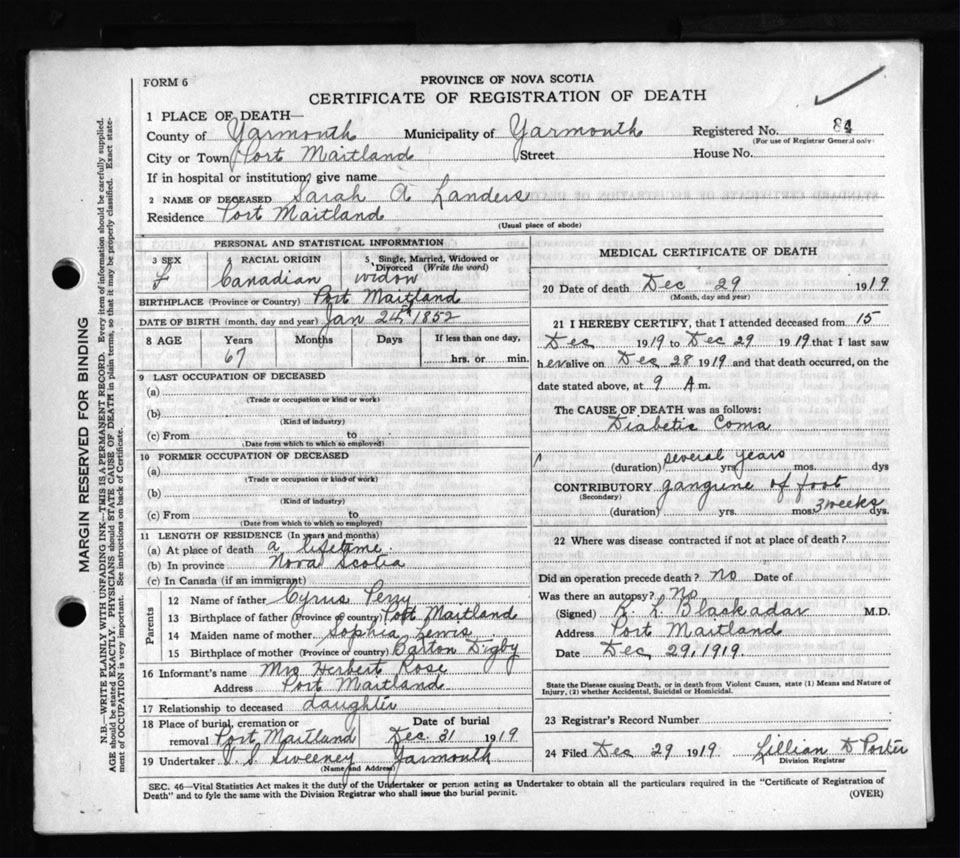 FORM 6
PROVINCE OF NOVA SCOTIA
CERTIFICATE OF REGISTRATION OF DEATH
1 PLACE OF DEATH—
County of Yarmouth Municipality of Yarmouth Registered No. 84
(For use of Registrar General only)
City or Town Port Maitland Street House No.
If in hospital or institution, give name
2 NAME OF DECEASED Sarah A Landers
Residence Port Maitland
(Usual place of abode)
PERSONAL AND STATISTICAL INFORMATION
3 SEX 4 RACIAL ORIGIN 5 Single, Married, Widowed or Divorced (Write the word)
f Canadian widow
BIRTHPLACE (Province or Country) Port Maitland
DATE OF BIRTH (month, day and year) Jan 24th 1852
8 AGE Years Months Days If less than one day,
67 hrs. or min.
9 LAST OCCUPATION OF DECEASED
(a)
(Trade or occupation or kind or work)
(b)
(Kind of industry)
(c) From to
(Date from which to which so employed)
10 FORMER OCCUPATION OF DECEASED
(a)
(Trade or occupation or kind of work)
(b)
(Kind of industry)
(c) From to
(Date from which to which so employed)
11 LENGTH OF RESIDENCE (In years and months)
(a) At place of death a lifetime
(b) In province Nova Scotia
(c) In Canada (if an immigrant)
Parents
12 Name of father Cyrus Perry
13 Birthplace of father (Province or country) Port Maitland
14 Maiden name of mother Sophia Lewis
15 Birthplace of mother (Province or country) Barton Digby
16 Informant's name Mrs Herbert Rose
Address Port Maitland
17 Relationship to deceased daughter
18 Place of burial, cremation or Date of burial
removal Port Maitland Dec. 31 1919
19 Undertaker Sweeney Yarmouth
(Name and Address)
MEDICAL CERTIFICATE OF DEATH
20 Date of death Dec 29 1919
(Month, day and year)
21 I HEREBY CERTIFY, that I attended deceased from 15
Dec 1919 to Dec 29 1919 that I last saw
her alive on Dec 28 1919 and that death occurred, on the
date stated above, at 9 A m.
The CAUSE OF DEATH was as follows:
Diabetic Coma
(duration) several years yrs. mos. dys
CONTRIBUTORY gangrine of foot
(Secondary)
(duration) yrs. mos. 3 weeks dys.
22 Where was disease contracted if not at place of death?
Did an operation precede death? no Date of
Was there an autopsy? No
(Signed) R. L. Blackadar M.D.
Address Port Maitland
Date Dec 29, 1919.
State the Disease causing Death, or in death from Violent Causes, state (1) Means and Nature of
Injury, (2) whether Accidental, Suicidal or Homicidal.
23 Registrar's Record Number
24 Filed Dec 29 1919 Lillian D Porter
Division Registrar
SEC. 46—Vital Statistics Act makes it the duty of the Undertaker or person acting as Undertaker to obtain all the particulars required in the "Certificate of Registration of
Death" and to fyle the same with the Division Registrar who shall issue the burial permit.
(OVER)
MARGIN RESERVED FOR BINDING
N.B.—WRITE PLAINLY WITH UNFADING INK—THIS IS A PERMANENT RECORD. Every item of information should be carefully supplied.
AGE should be stated EXACTLY. PHYSICIANS should STATE CAUSE OF DEATH in plain terms, so that it may be properly classified. Exact state-
ment of OCCUPATION is very important. See instructions on back of Certificate.